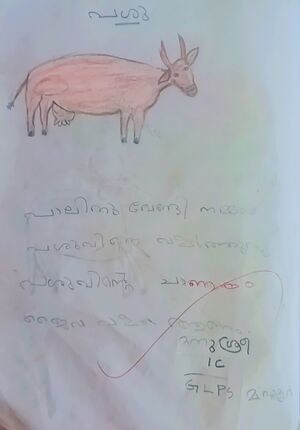 പശു
പാലിനു വേണ്ടി നമ്മൾ
പശുവിനെ വളർത്തുന്നു
പശുവിന്റെ ചാണകം
ജൈവ വളം ആണ്.
1 C
GLPS